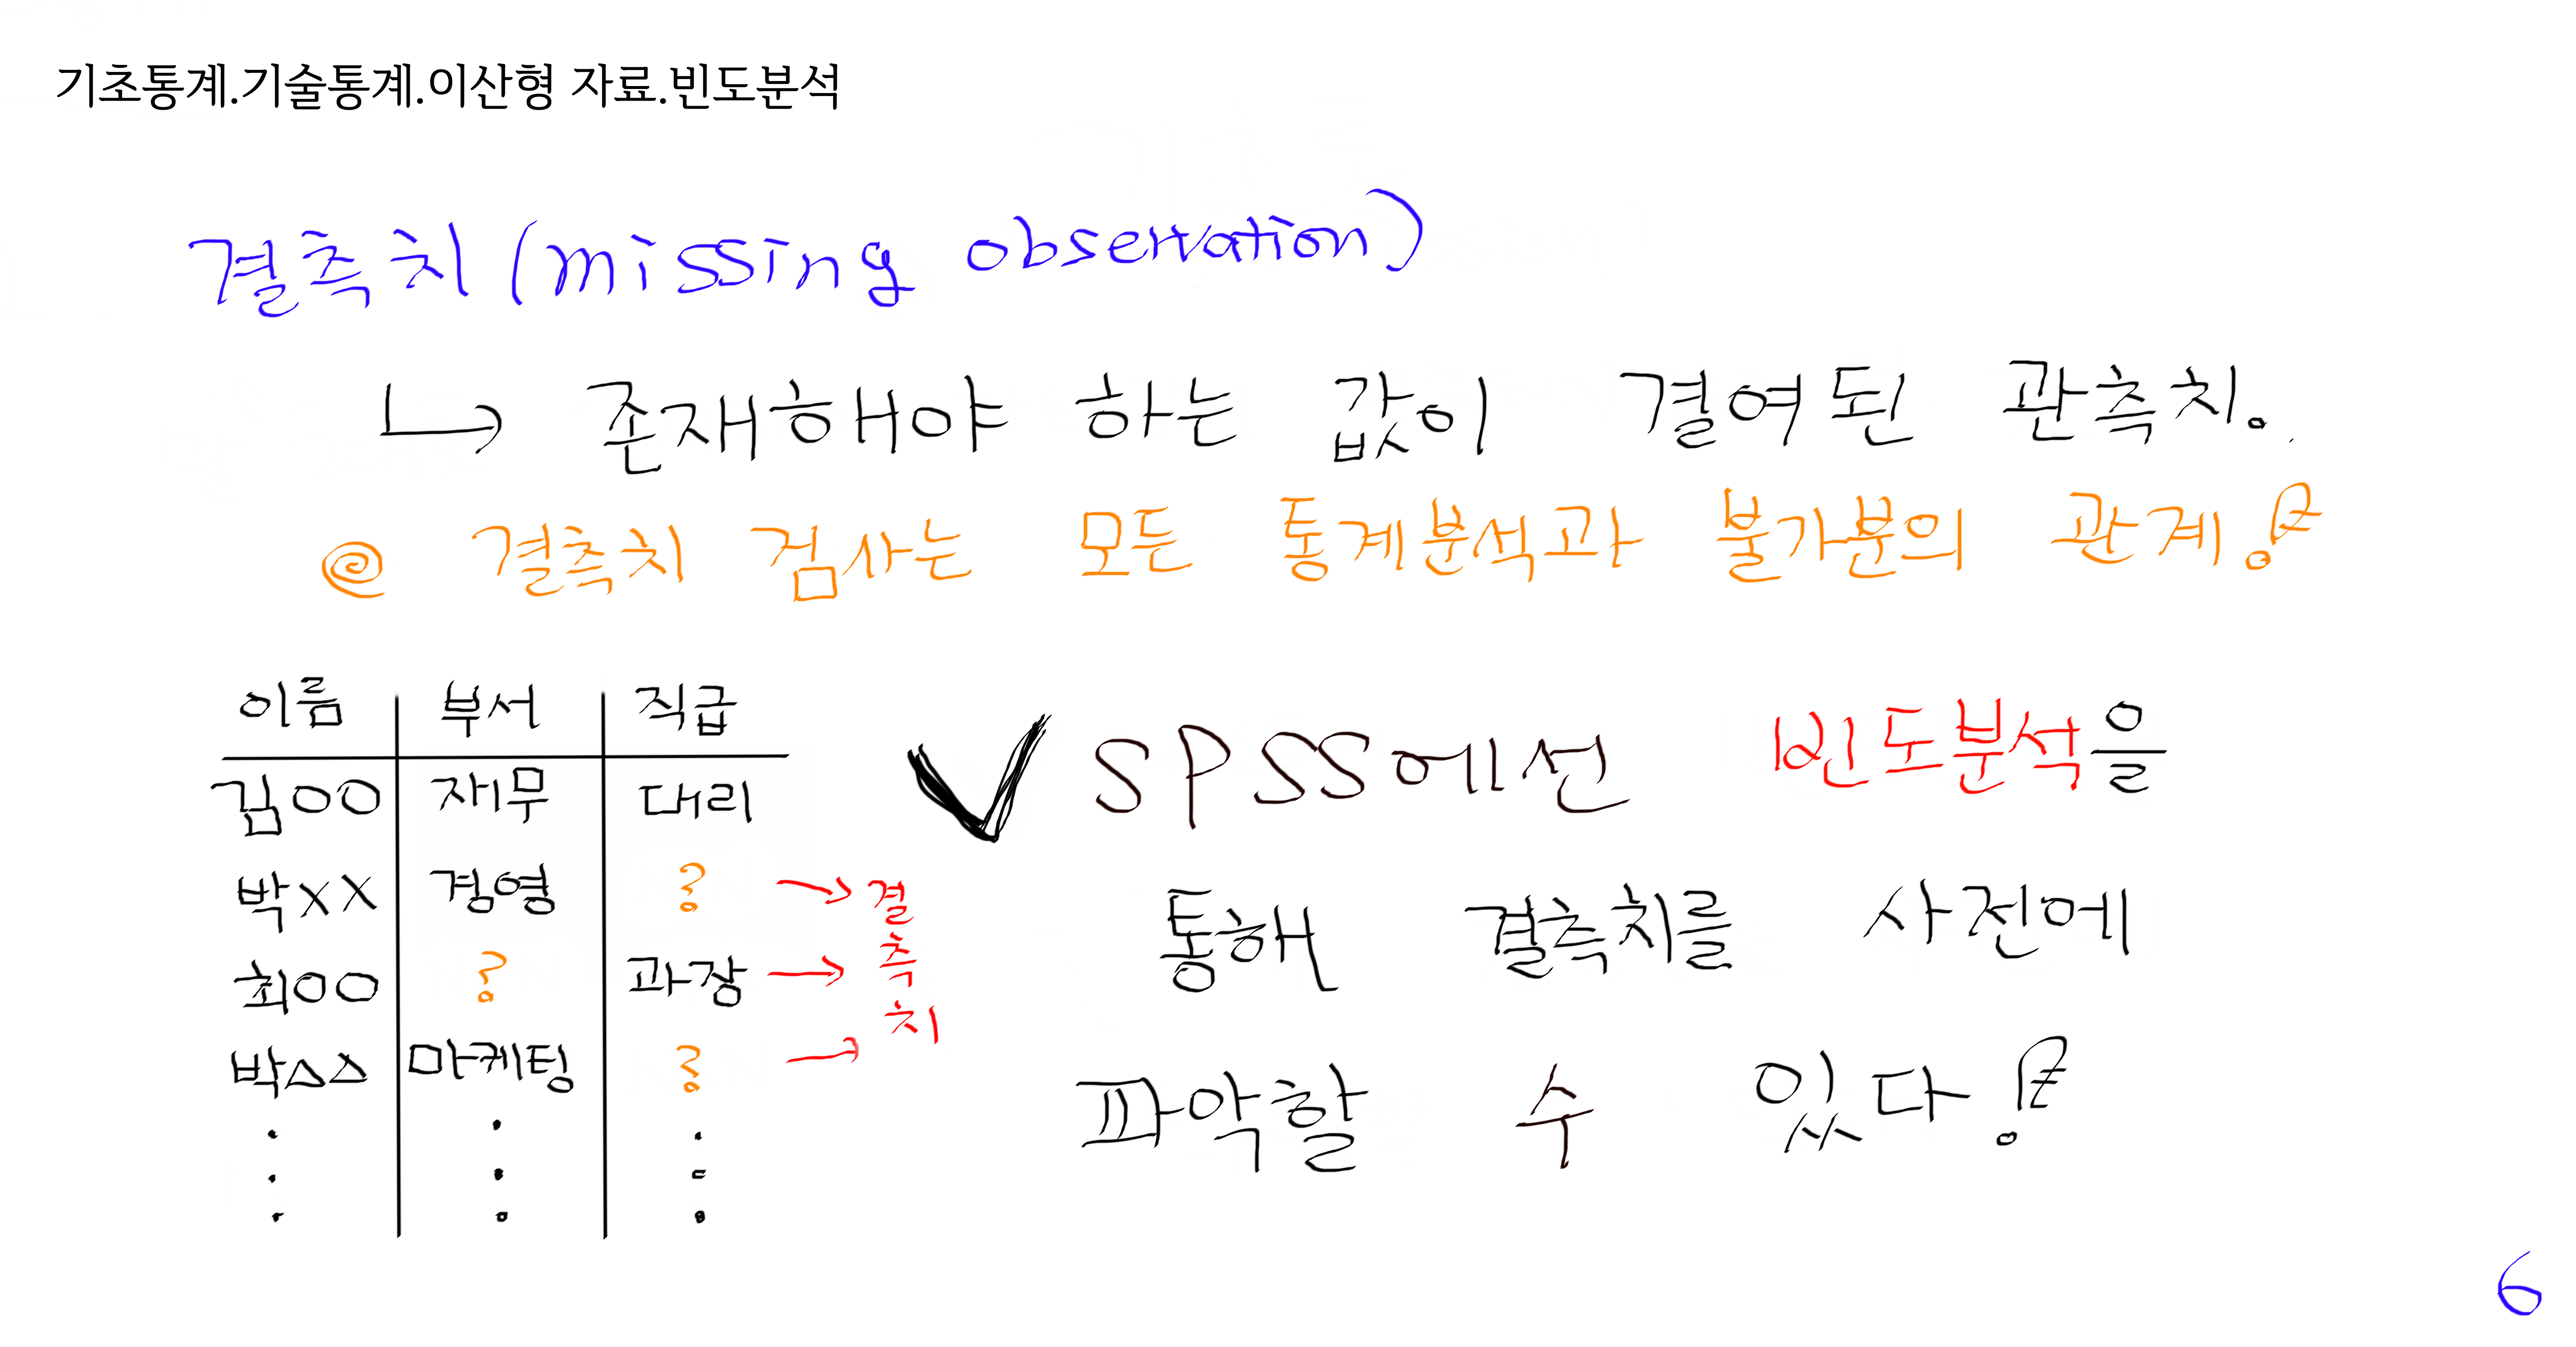 기초통계.기술통계.이산형 자료.빈도분석
결측치 (missing observation)
↳ 존재해야 하는 값이 결여된 관측치.
@ 결측치 검사는 모든 통계분석과 불가분의 관계!
이름 부서 직급
김OO 재무 대리
박XX 경영 ? → 결
최OO ? 과장 → 측
박△△ 마케팅 ? → 치
✓ SPSS에선 빈도분석을
통해 결측치를 사전에
파악할 수 있다!
6